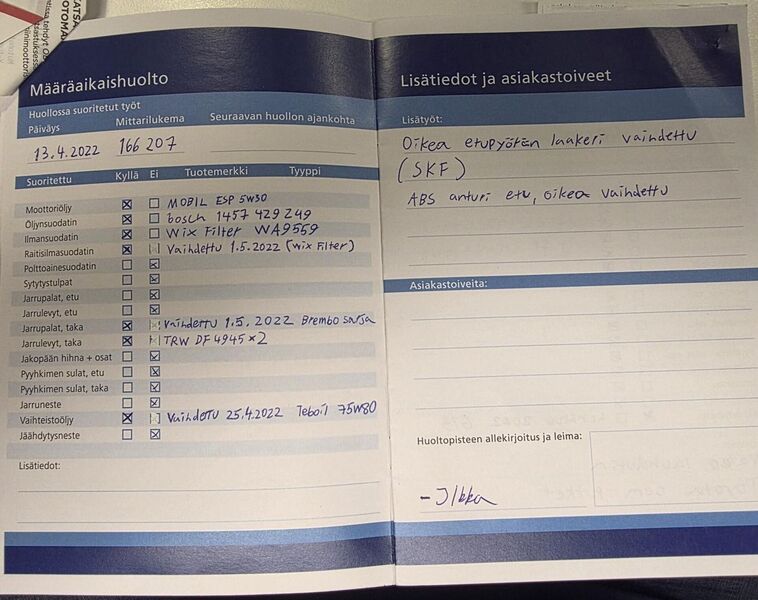 ATSA
OTOMA
eissa tehdyt OB
Määräaikaishuolto
Huollossa suoritetut työt
Päiväys Mittarilukema Seuraavan huollon ajankohta
13.4.2022 166 207
Suoritettu Kyllä Ei Tuotemerkki Tyyppi
Moottoriöljy MOBIL ESP 5W30
Öljynsuodatin bosch 1457 429 249
Ilmansuodatin Wix Filter WA9559
Raitisilmasuodatin Vaihdettu 1.5.2022 (Wix Filter)
Polttoainesuodatin
Sytytystulpat
Jarrupalat, etu
Jarrulevyt, etu
Jarrupalat, taka Vaihdettu 1.5.2022 Brembo sarja
Jarrulevyt, taka TRW DF4945 x2
Jakopään hihna + osat
Pyyhkimen sulat, etu
Pyyhkimen sulat, taka
Jarruneste
Vaihteistoöljy Vaihdettu 25.4.2022 Teboil 75W80
Jäähdytysneste
Lisätiedot:
Lisätiedot ja asiakastoiveet
Lisätyöt:
Oikea etupyörän laakeri vaihdettu
(SKF)
ABS anturi etu, oikea vaihdettu
Asiakastoiveita:
Huoltopisteen allekirjoitus ja leima:
- Ilkka